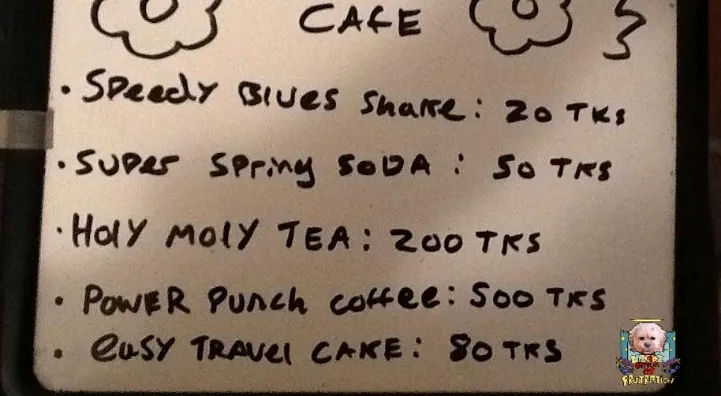 CAFE
• Speedy Blues Shake: 20 TKS
• Super Spring SODA: 50 TKS
• Holy Moly TEA: 200 TKS
• POWER Punch coffee: 500 TKS
• easy TRAVel CAKE: 80 TKS
FRUSTRATION